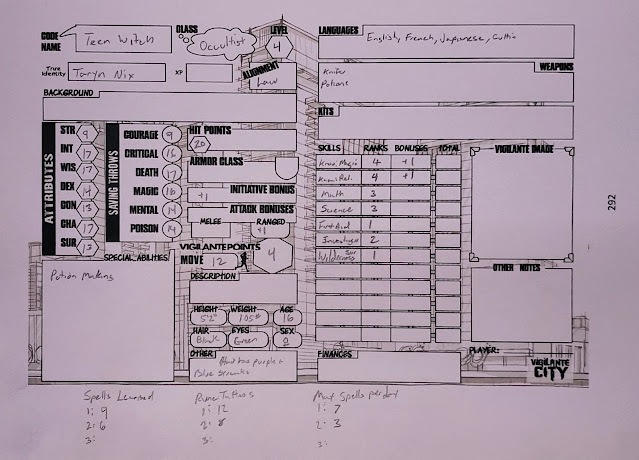 CODE NAME Teen Witch
CLASS Occultist
LEVEL 4
True Identity Taryn Nix
XP
ALIGNMENT Law
BACKGROUND
ATTRIBUTES
STR 9
INT 17
WIS 17
DEX 14
CON 13
CHA 17
SUR 13
SAVING THROWS
COURAGE 9
CRITICAL 16
DEATH 17
MAGIC 16
MENTAL 14
POISON 14
HIT POINTS
20
ARMOR CLASS
INITIATIVE BONUS
+1
ATTACK BONUSES
MELEE
RANGED
+1
VIGILANTE POINTS
4
MOVE 12
SPECIAL ABILITIES
Potion Making
DESCRIPTION
HEIGHT WEIGHT AGE
5'2" 105# 16
HAIR EYES SEX
Black Green
OTHER
purple +
Blue streaks
LANGUAGES
English, French, Japanese,
WEAPONS
Knife
Potions
KITS
SKILLS RANKS BONUSES TOTAL
Know. Magic 4 +1
Know. Rel. 4 +1
Math 3
Science 3
First Aid 1
2
Wilderness 1
FINANCES
VIGILANTE IMAGE
OTHER NOTES
PLAYER:
VIGILANTE
CITY
292
Spells Learned
1: 9
2: 6
3:
Rune Tattoos
1: 12
2: 8
3:
Max Spells per day
1: 7
2: 3
3: